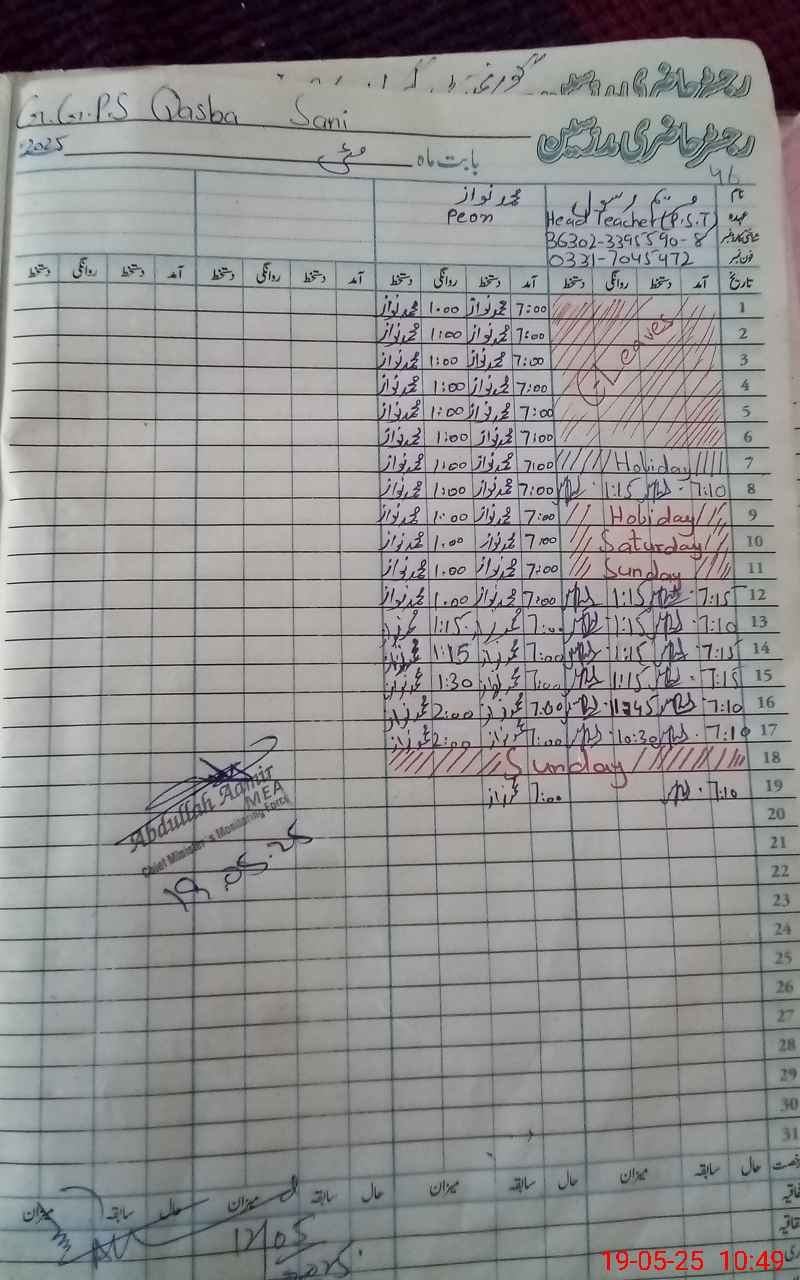 رجسٹر حاضری مدرسین
G.G.P.S Qasba Sani
رجسٹر حاضری مدرسین
2025 مئی بابت ماہ
46
نام مریم رسول محمد نواز
عہدہ Head Teacher (P.S.T) Peon
شناختی کارڈ نمبر 36302-3395590-8
فون نمبر 0331-7045472
تاریخ آمد دستخط روانگی دستخط آمد دستخط روانگی دستخط آمد دستخط روانگی دستخط آمد دستخط روانگی دستخط
1 7:00 محمد نواز 1:00 محمد نواز
2 Leaves 7:00 محمد نواز 1:00 محمد نواز
3 7:00 محمد نواز 1:00 محمد نواز
4 7:00 محمد نواز 1:00 محمد نواز
5 7:00 محمد نواز 1:00 محمد نواز
6 7:00 محمد نواز 1:00 محمد نواز
7 Holiday 7:00 محمد نواز 1:00 محمد نواز
8 7:10 1:15 7:00 محمد نواز 1:00 محمد نواز
9 Holiday 7:00 محمد نواز 1:00 محمد نواز
10 Saturday 7:00 محمد نواز 1:00 محمد نواز
11 Sunday 7:00 محمد نواز 1:00 محمد نواز
12 7:15 1:15 7:00 محمد نواز 1:00 محمد نواز
13 7:10 1:15 7:00 محمد نواز 1:15 محمد نواز
14 7:15 1:15 7:00 محمد نواز 1:15 محمد نواز
15 7:15 1:15 7:00 محمد نواز 1:30 محمد نواز
16 7:10 7:00 محمد نواز 2:00 محمد نواز
17 7:10 10:30 7:00 محمد نواز 2:00 محمد نواز
18 Sunday
19 7:10 7:00 محمد نواز
20
21
22
23
24
25
26
27
28
29
30
31
Abdullah Aamir
MEA
Chief Minister's Monitoring Force
19.05.25
حال سابقہ میزان حال سابقہ میزان حال سابقہ میزان حال سابقہ میزان
12/05
2025
19-05-25 10:49